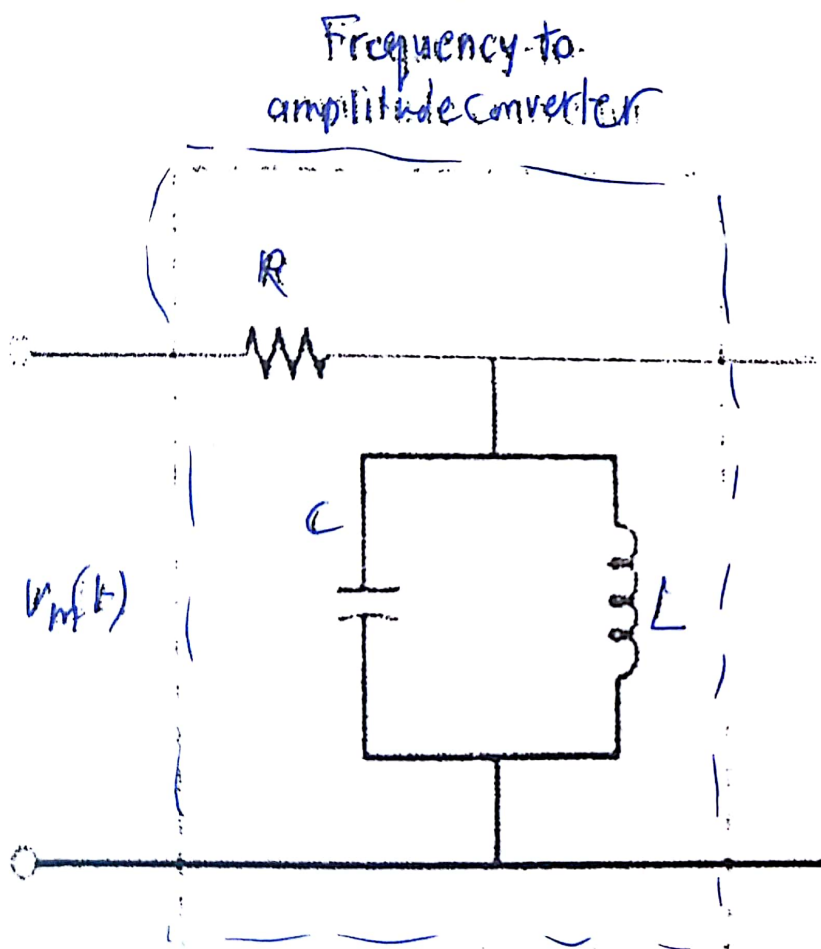 Frequency-to-
amplitude converter
R
C
L